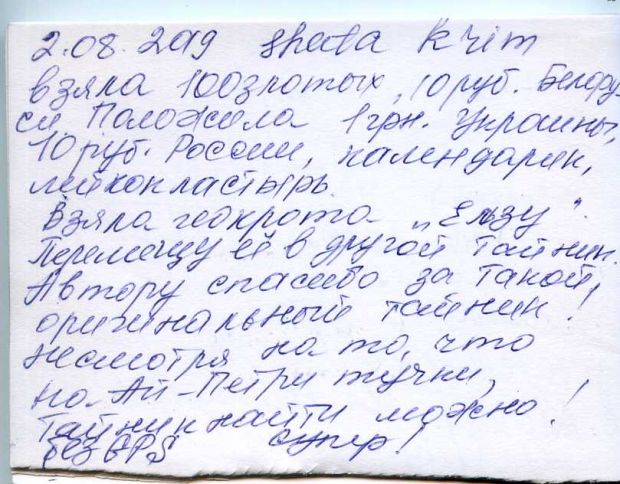 2.08.2019 sheta Krim
взяла 100 злотых, 10 руб. Белору-
си. Положила 1 грн. Украины,
10 руб. России, календарик,
лейкопластырь.
Взяла геокрота „Ельзу".
Перемещу её в другой тайник.
Автору спасибо за такой
оригинальный тайник!
несмотря на то, что
на Ай-Петри тучки,
тайник найти можно!
без GPS супер!